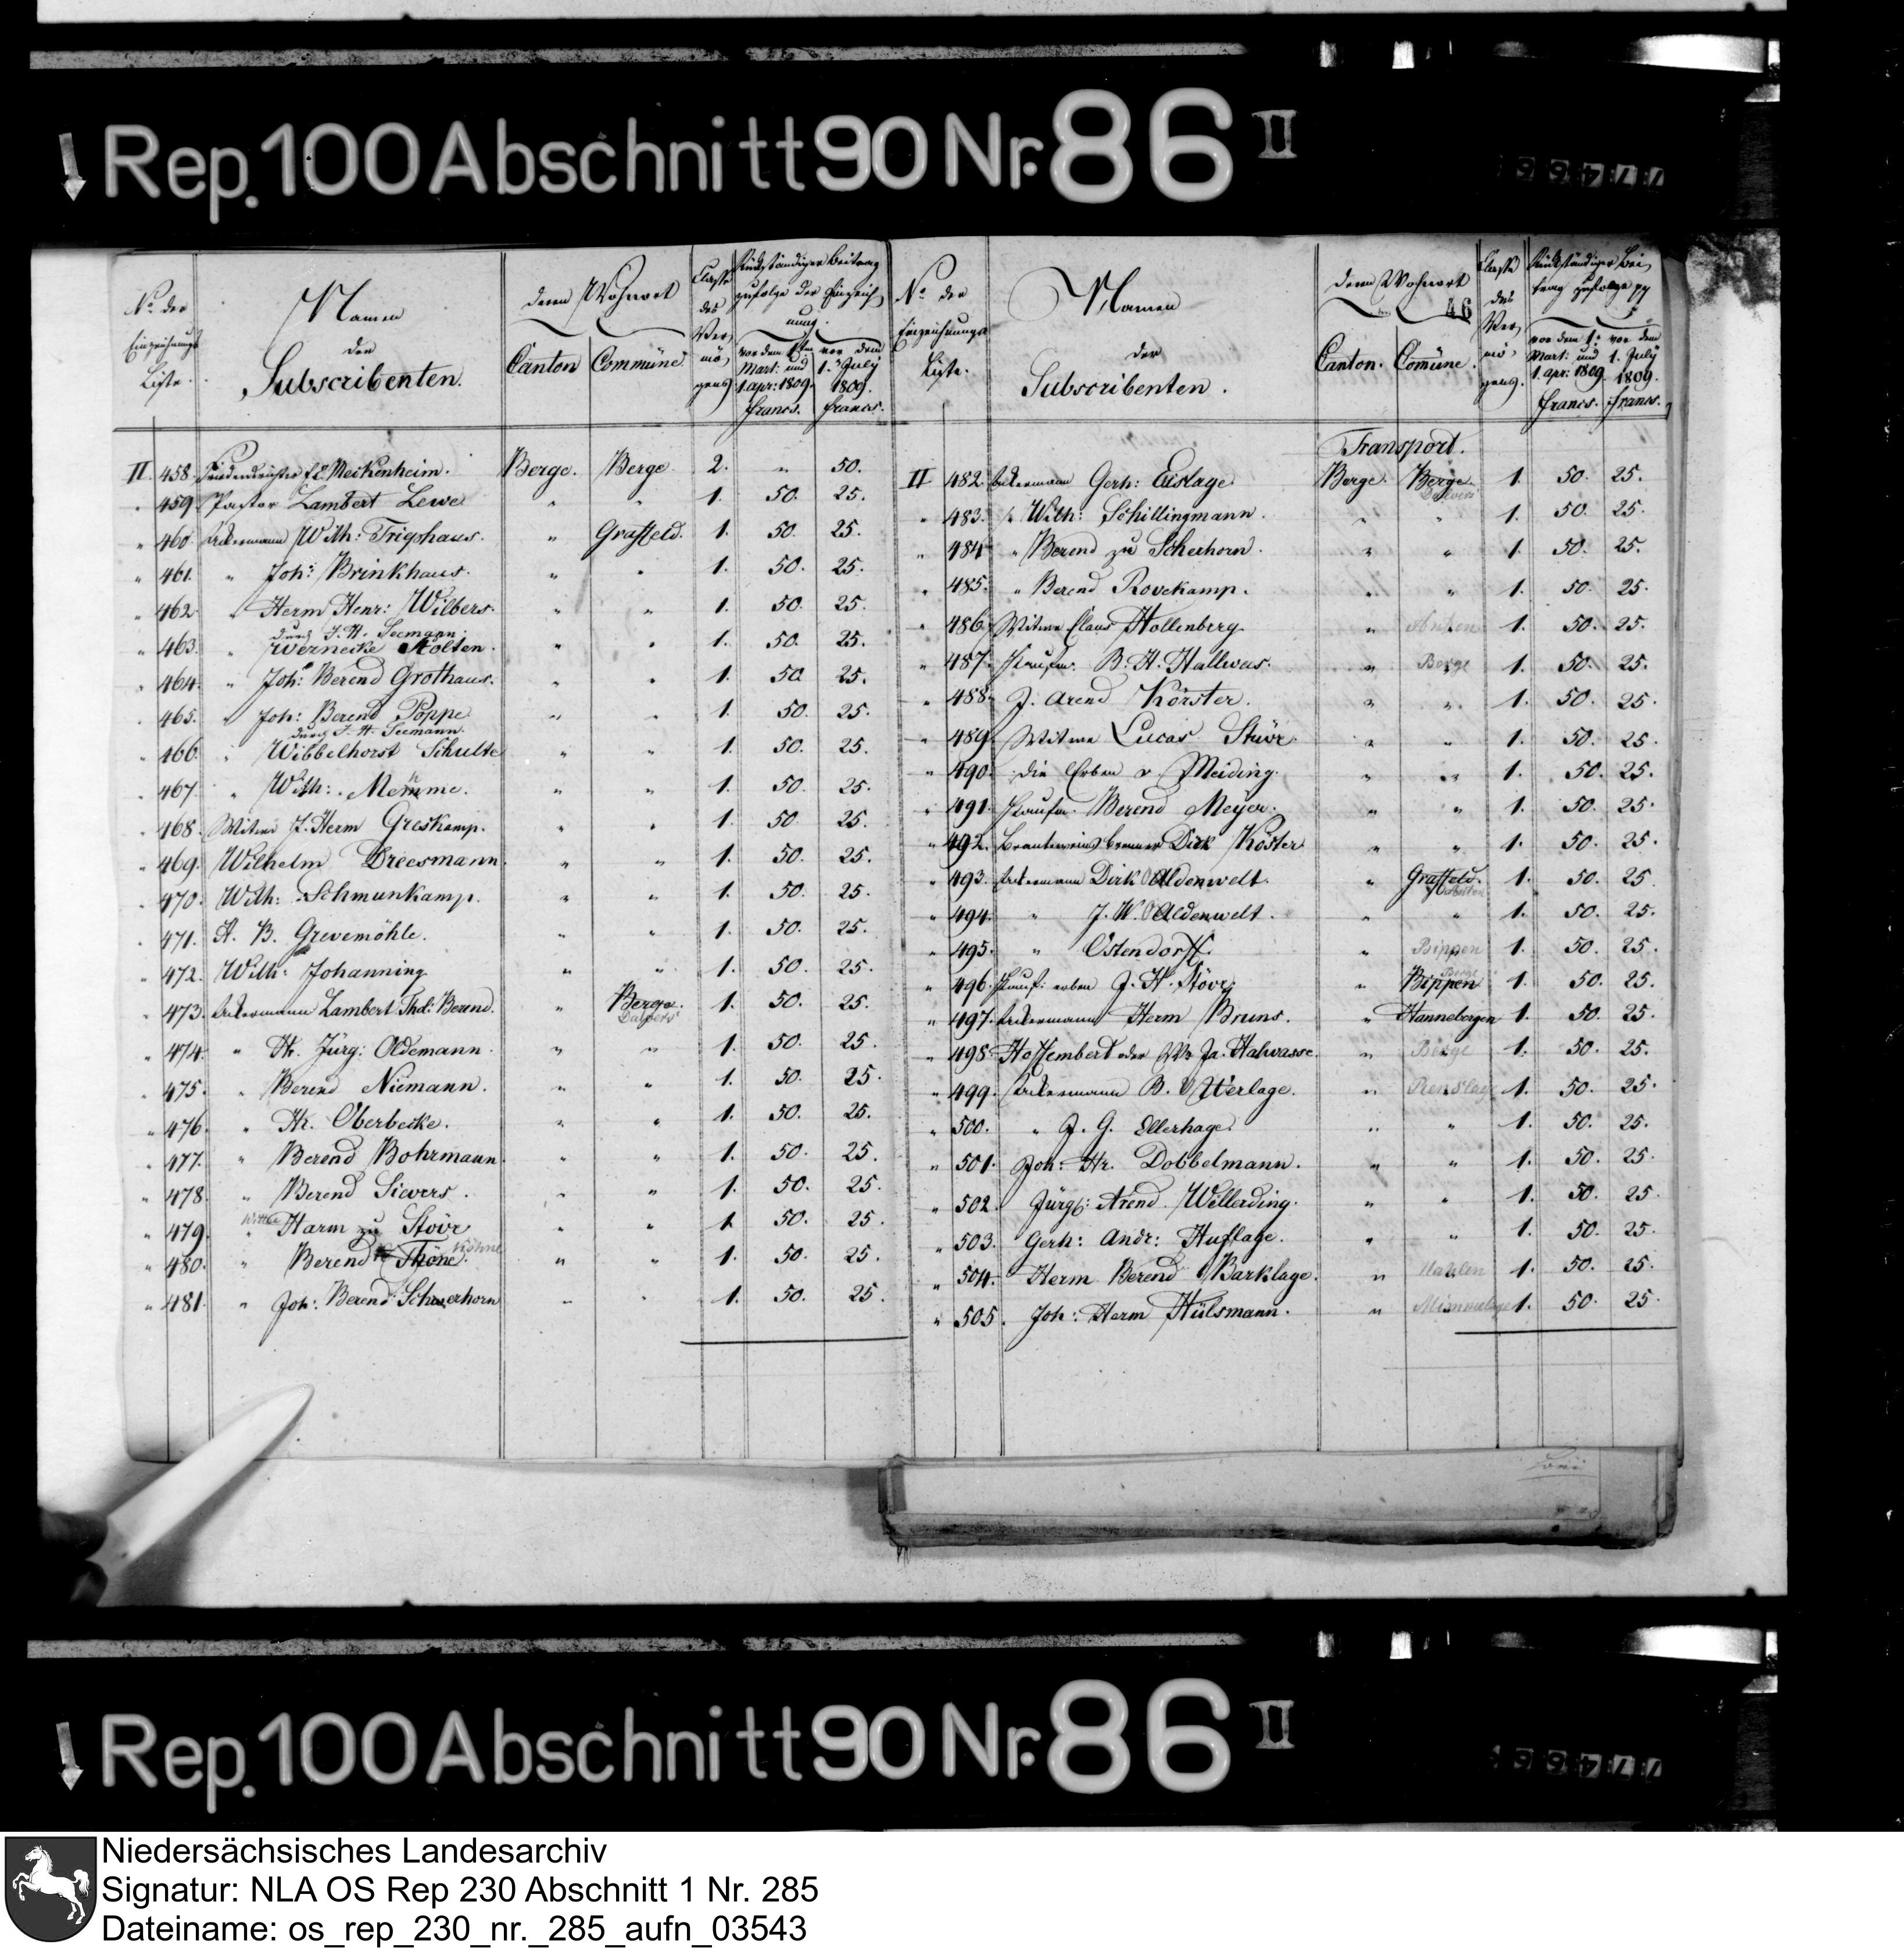 Rep. 100 Abschnitt 90 Nr. 86 II
No. der Einzeichnungs Liste.
Namen der Subscribenten.
deren Wohnort
Canton Commüne.
Classe des Vermögens
Rückständiger Beitrag zufolge der Einzeichnung.
vor dem 1ten Mart: und 1. apr: 1809. francs.
vor dem 1. July 1809. francs.
II. 458. Friedensrichter Meckenheim. Berge. Berge 2. " 50.
" 459. Pastor Lambert Lewe " " 1. 50. 25.
" 460. Ackermann Wilh: Frigohaus. " Graffeld. 1. 50. 25.
" 461. " Joh: Brinkhaus. " " 1. 50. 25.
" 462. " Herm Henr: Wilbers. " " 1. 50. 25.
durch J. H. Seemann.
" 463. " Wernecke Nölten. " " 1. 50. 25.
" 464. " Joh: Berend Grothaus. " " 1. 50 25.
" 465. " Joh: Berend Poppe " " 1. 50. 25.
durch J. H. Seemann.
" 466. " Wibbelhorst Schulte " " 1. 50. 25.
" 467. " Wilh: Memme. " " 1. 50. 25.
" 468. Witwe J. Herm Greskamp. " " 1. 50 25.
" 469. Wilhelm Dreesmann. " " 1. 50. 25.
" 470. Wilh: Schmunkamp. " " 1. 50. 25.
" 471. A. B. Grevemöhle. " " 1. 50. 25.
" 472. Wilh: Johanning " " 1. 50. 25.
" 473. Ackermann Lambert Thd: Berend. " Berge. Dalvers 1. 50. 25.
" 474. " H. Jürg: Oldemann. " " 1. 50. 25.
" 475. " Berend Niemann. " " 1. 50. 25.
" 476. " Hr. Oberbecke. " " 1. 50. 25.
" 477. " Berend Bohrmann. " " 1. 50. 25.
" 478. " Berend Sievers. " " 1. 50. 25.
" 479. Wittwe Harm zu Stövr " " 1. 50. 25.
" 480. " Berend Thöne. " " 1. 50. 25.
" 481. " Joh: Berend Scheerhorn " " 1. 50. 25.
No. der Einzeichnungs Liste.
Namen der Subscribenten.
deren Wohnort
46
Canton. Comüne.
Classe des Vermögens.
Rückständiger Beitrag zufolge pp
vor dem 1. Mart: und 1. apr: 1809. francs.
vor dem 1. July 1809. francs.
Transport.
II 482. Ackermann Gerh: Eislage Berge. Berge. Dalvers 1. 50. 25.
" 483. " Wilh: Schillingmann. " " 1. 50. 25.
" 484. " Berend zu Scherhorn. " " 1. 50. 25.
" 485. " Berend Rovekamp. " " 1. 50. 25.
" 486. Witwe Claus Hollenberg " 1. 50. 25.
" 487. Kaufm. B. H. Hallwas. " Berge 1. 50. 25.
" 488. J. Arend Körster. " " 1. 50. 25.
" 489. Witwe Lucas Stüvr. " " 1. 50. 25.
" 490. die Erben v. Meiding. " " 1. 50. 25.
" 491. Kaufm. Berend Meyer. " " 1. 50. 25.
" 492. Branteweinsbrenner Dirk Köster " " 1. 50. 25.
" 493. Ackermann Dirk Aldenwelt. " Graffeld. 1. 50. 25
" 494. " J. W. Aldenwelt. " " 1. 50. 25.
" 495. " Ostendorff. " Bippen 1. 50. 25.
" 496. Kauf: erben J. H. Stövr. " Bippen Berge 1. 50. 25.
" 497. Ackermann Herm Bruns. " Hannebergen 1. 50. 25.
" 498. Hoffembert oder Ww Ja. Halwasse. " Berge 1. 50. 25.
" 499. Ackermann B. Utterlage. " Renslage 1. 50. 25.
" 500. " J. G. Ellerhage. " " 1. 50. 25.
" 501. Joh: Hr. Dobbelmann. " " 1. 50. 25.
" 502 Jürg: Arend Wellerding. " " 1. 50. 25.
" 503. Gerh: Andr: Huflage. " " 1. 50. 25.
" 504. Herm Berend Barklage. " Hahlen 1. 50. 25.
" 505. Joh: Herm Hülsmann. " Mimmelage 1. 50. 25.
Rep. 100 Abschnitt 90 Nr. 86 II
Niedersächsisches Landesarchiv
Signatur: NLA OS Rep 230 Abschnitt 1 Nr. 285
Dateiname: os_rep_230_nr._285_aufn_03543